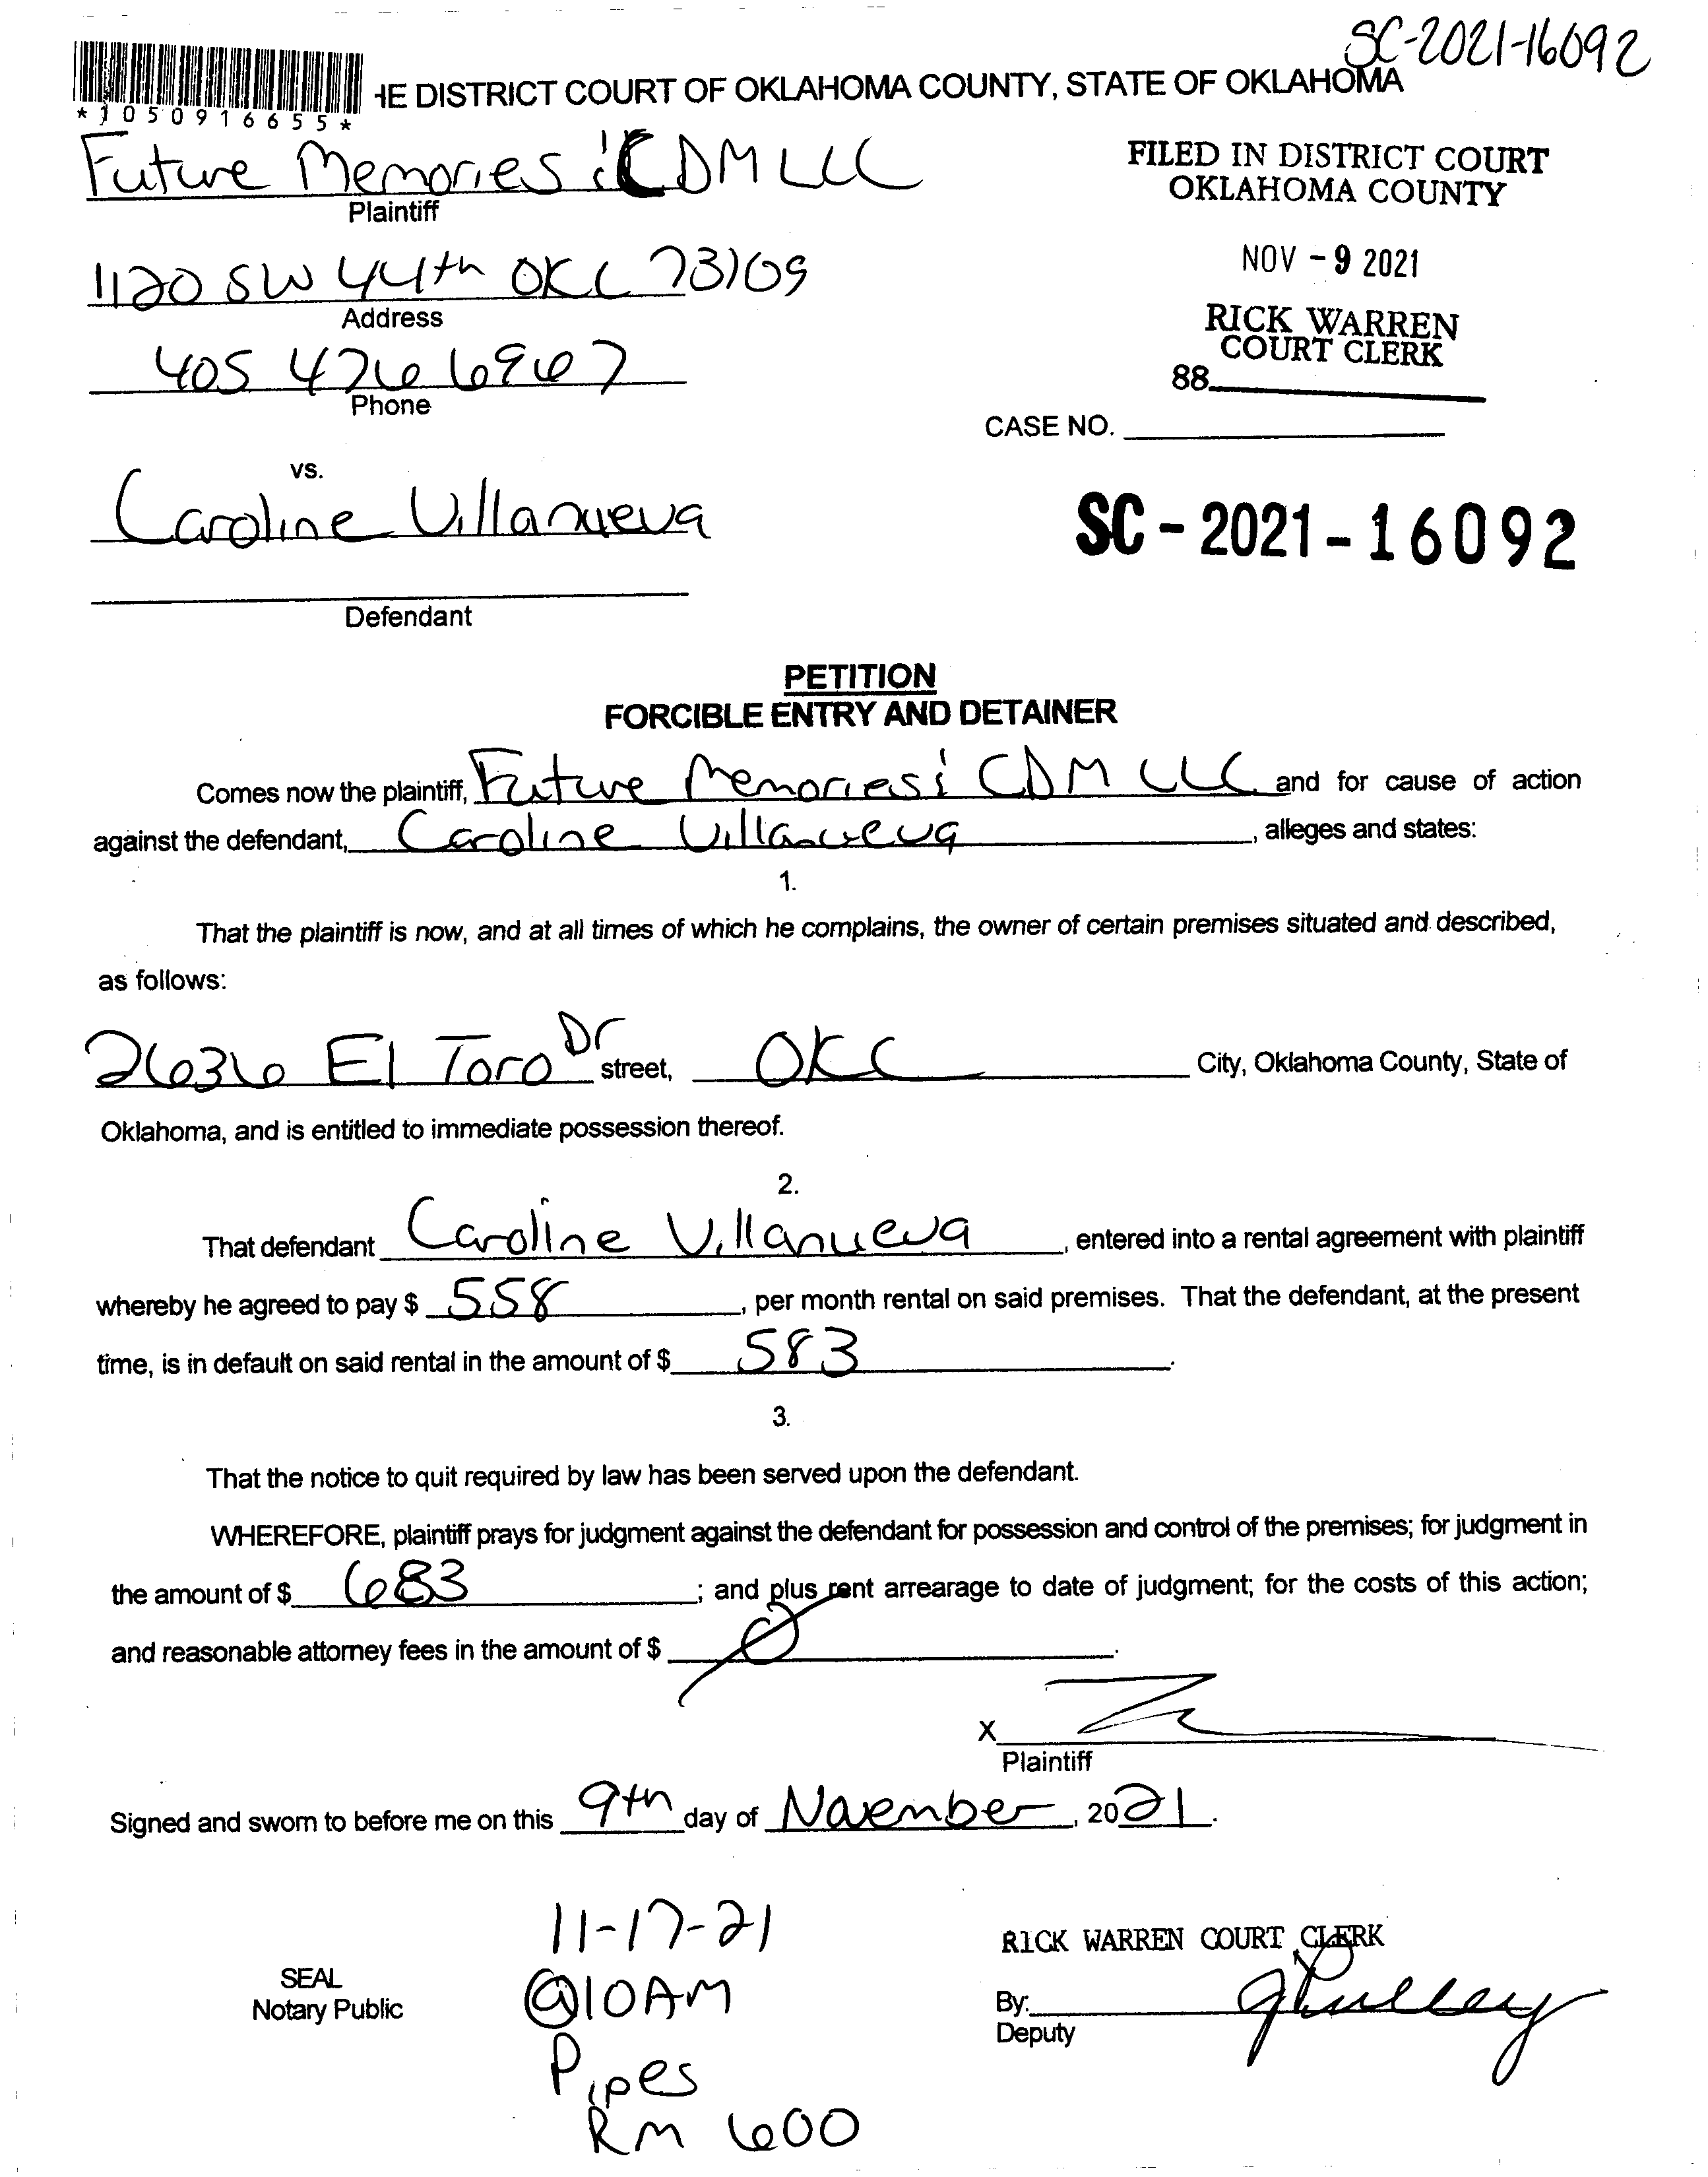 SC-2021-16092
HE DISTRICT COURT OF OKLAHOMA COUNTY, STATE OF OKLAHOMA
*1050916655*
Future Memories CDM LLC
Plaintiff
FILED IN DISTRICT COURT
OKLAHOMA COUNTY
1120 SW 44th OKC 73109
Address
NOV - 9 2021
405 476 6967
Phone
RICK WARREN
COURT CLERK
88
CASE NO.
vs.
Caroline Villanueva
SC - 2021 - 16092
Defendant
PETITION
FORCIBLE ENTRY AND DETAINER
Comes now the plaintiff, Future Memories CDM LLC and for cause of action
against the defendant, Caroline Villanueva, alleges and states:
1.
That the plaintiff is now, and at all times of which he complains, the owner of certain premises situated and described,
as follows:
2636 El Toro Dr street, OKC City, Oklahoma County, State of
Oklahoma, and is entitled to immediate possession thereof.
2.
That defendant Caroline Villanueva, entered into a rental agreement with plaintiff
whereby he agreed to pay $ 558, per month rental on said premises. That the defendant, at the present
time, is in default on said rental in the amount of $ 583.
3.
That the notice to quit required by law has been served upon the defendant.
WHEREFORE, plaintiff prays for judgment against the defendant for possession and control of the premises; for judgment in
the amount of $ 683; and plus rent arrearage to date of judgment; for the costs of this action;
and reasonable attorney fees in the amount of $ 0.
X
Plaintiff
Signed and sworn to before me on this 9th day of November, 2021.
11-17-21
@10AM
Pipes
RM 600
SEAL
Notary Public
RICK WARREN COURT CLERK
By:
Deputy